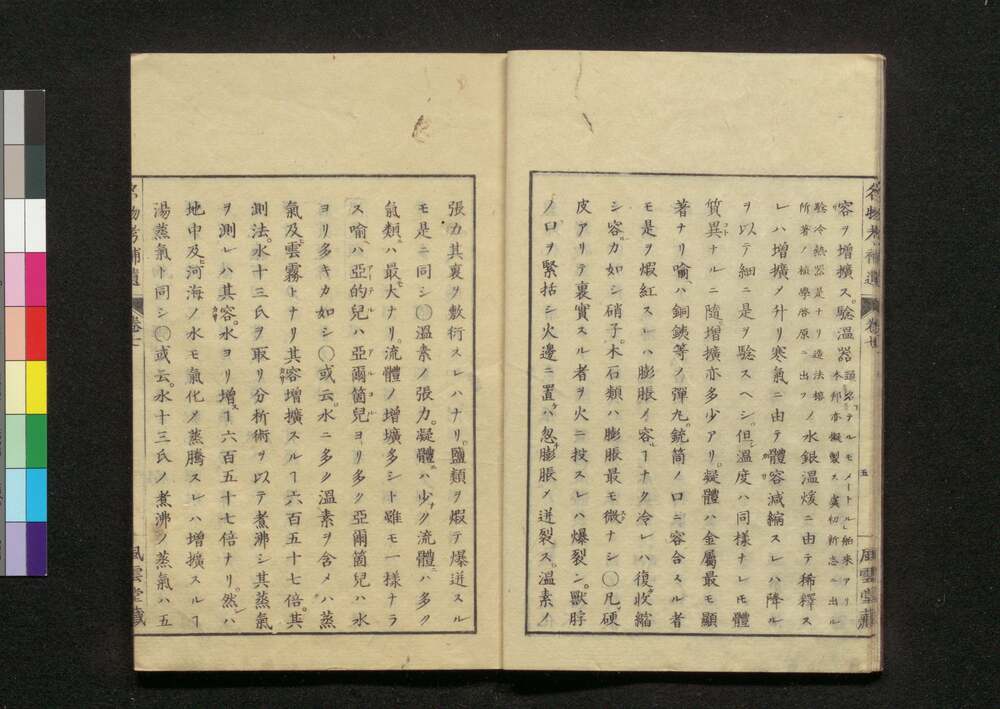 名物考補遺 卷七 五 風雲堂藏
容ヲ增擴ス驗溫器
驗冷熱器是ナリ造法
所著ノ植學啓原ニ出ツ
水銀溫煖ニ由テ稀釋ス
レハ增擴メ升リ寒氣ニ由テ體容減縮スレハ降ル
ヲ以テ細ニ是ヲ驗スヘシ但溫度ハ同樣ナレモ體
質異ナルニ隨增擴亦多少アリ凝體ハ金屬最モ顯
著ナリ喩ハ銅銕等ノ彈丸銃筒ノ口ニ容合スル者
モ是ヲ煆紅スレハ膨脹メ容ーナク冷レハ復收縮
シ容カ如シ硝子木石類ハ膨脹最モ微ナシ〇凡硬
皮アリテ裏實スル者ヲ火ニ投スレハ爆裂ン獸脬
ノ口ヲ緊括シ火邊ニ置ハ忽膨脹メ迸裂ス溫素ノ
張力其裏ヲ敷衍スレハナリ鹽類ヲ煆テ爆迸スル
モ是ニ同シ〇溫素ノ張力凝體ハ少ク流體ハ多ク
氣類ハ最大ナリ流體ノ增擴多シト雖モ一樣ナラ
ス喩ハ亞的兒ハ亞爾箇兒ヨリ多ク亞爾箇兒ハ水
ヨリ多キカ如シ〇或云水ニ多ク溫素ヲ含メハ蒸
氣及雲霧トナリ其容增擴スルー六百五十七倍其
測法水十三氏ヲ取リ分析術ヲ以テ煮沸シ其蒸氣
ヲ測レハ其容水ヨリ增ー六百五十七倍ナリ然レハ
地中及河海ノ水モ氣化メ蒸騰スレハ增擴スルー
湯蒸氣ト同シ〇或云水十三氏ノ煮沸ノ蒸氣ハ五
名物考補遺 卷七 風雲堂藏